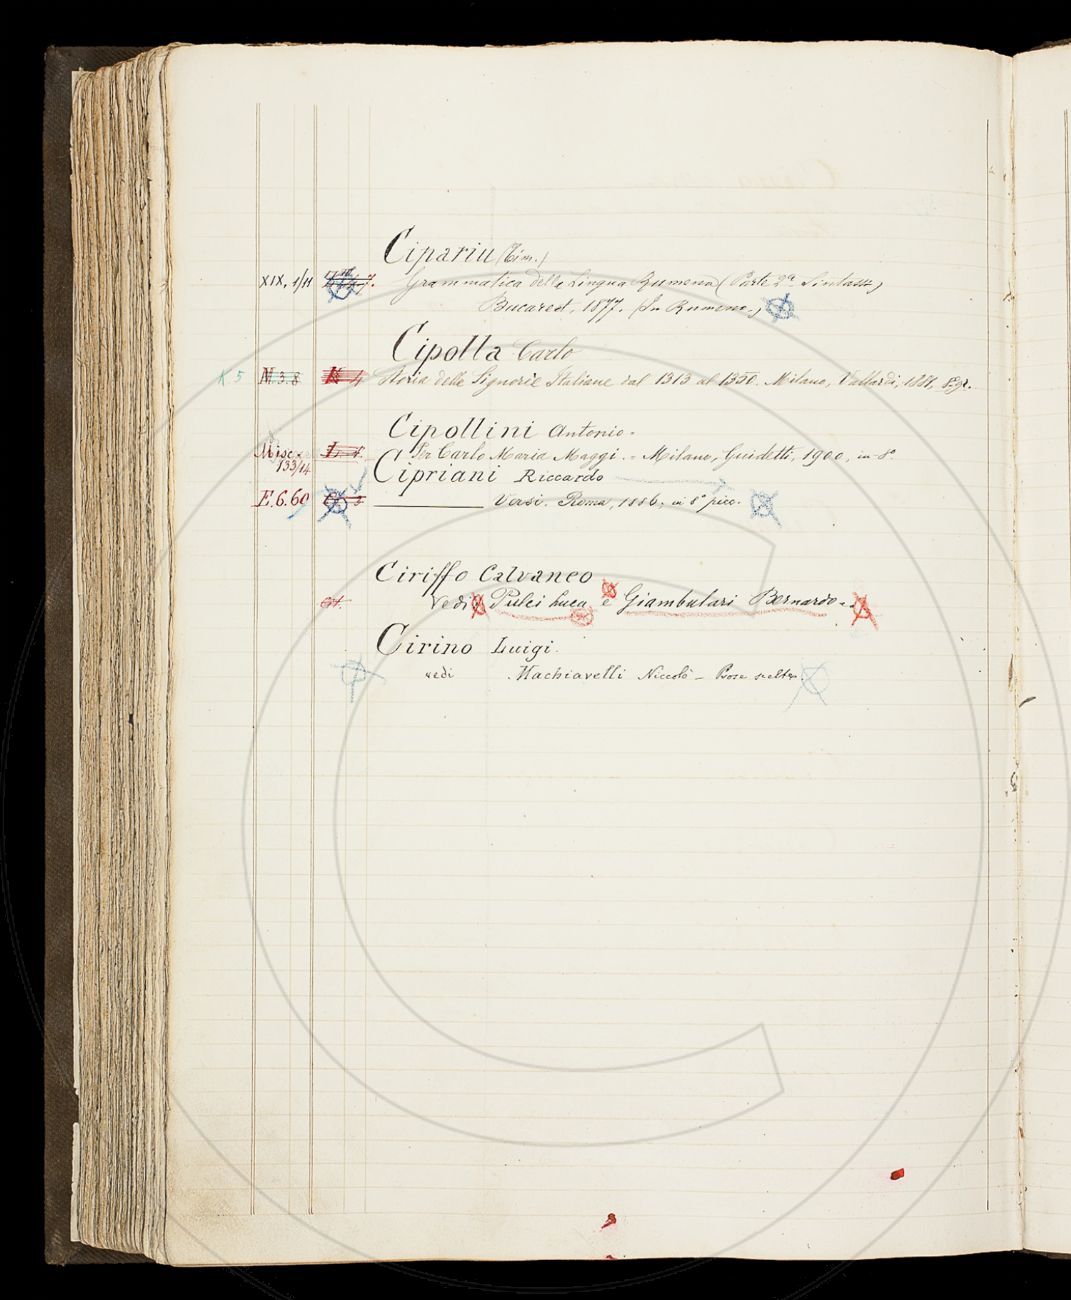 Cipariu (Tim.)
XIX, 1/11 Grammatica della Lingua Rumena (Parte 2ª Sintassi)
Bucarest, 1877. (In Rumeno.)
Cipolla Carlo
K 5 N.3.8 K 4 Storia delle Signorie Italiane dal 1313 al 1530. Milano, Vallardi, 1881, 8° gr.
Cipollini Antonio.
Misc. 133/14 Per Carlo Maria Maggi. = Milano, Guidetti, 1900, in-8°
Cipriani Riccardo
E.6.60 Versi. Roma, 1886, in 8° picc.
Ciriffo Calvaneo
Vedi Pulci Luca e Giambulari Bernardo.
Cirino Luigi.
vedi Machiavelli Niccolò – Prose scelte.